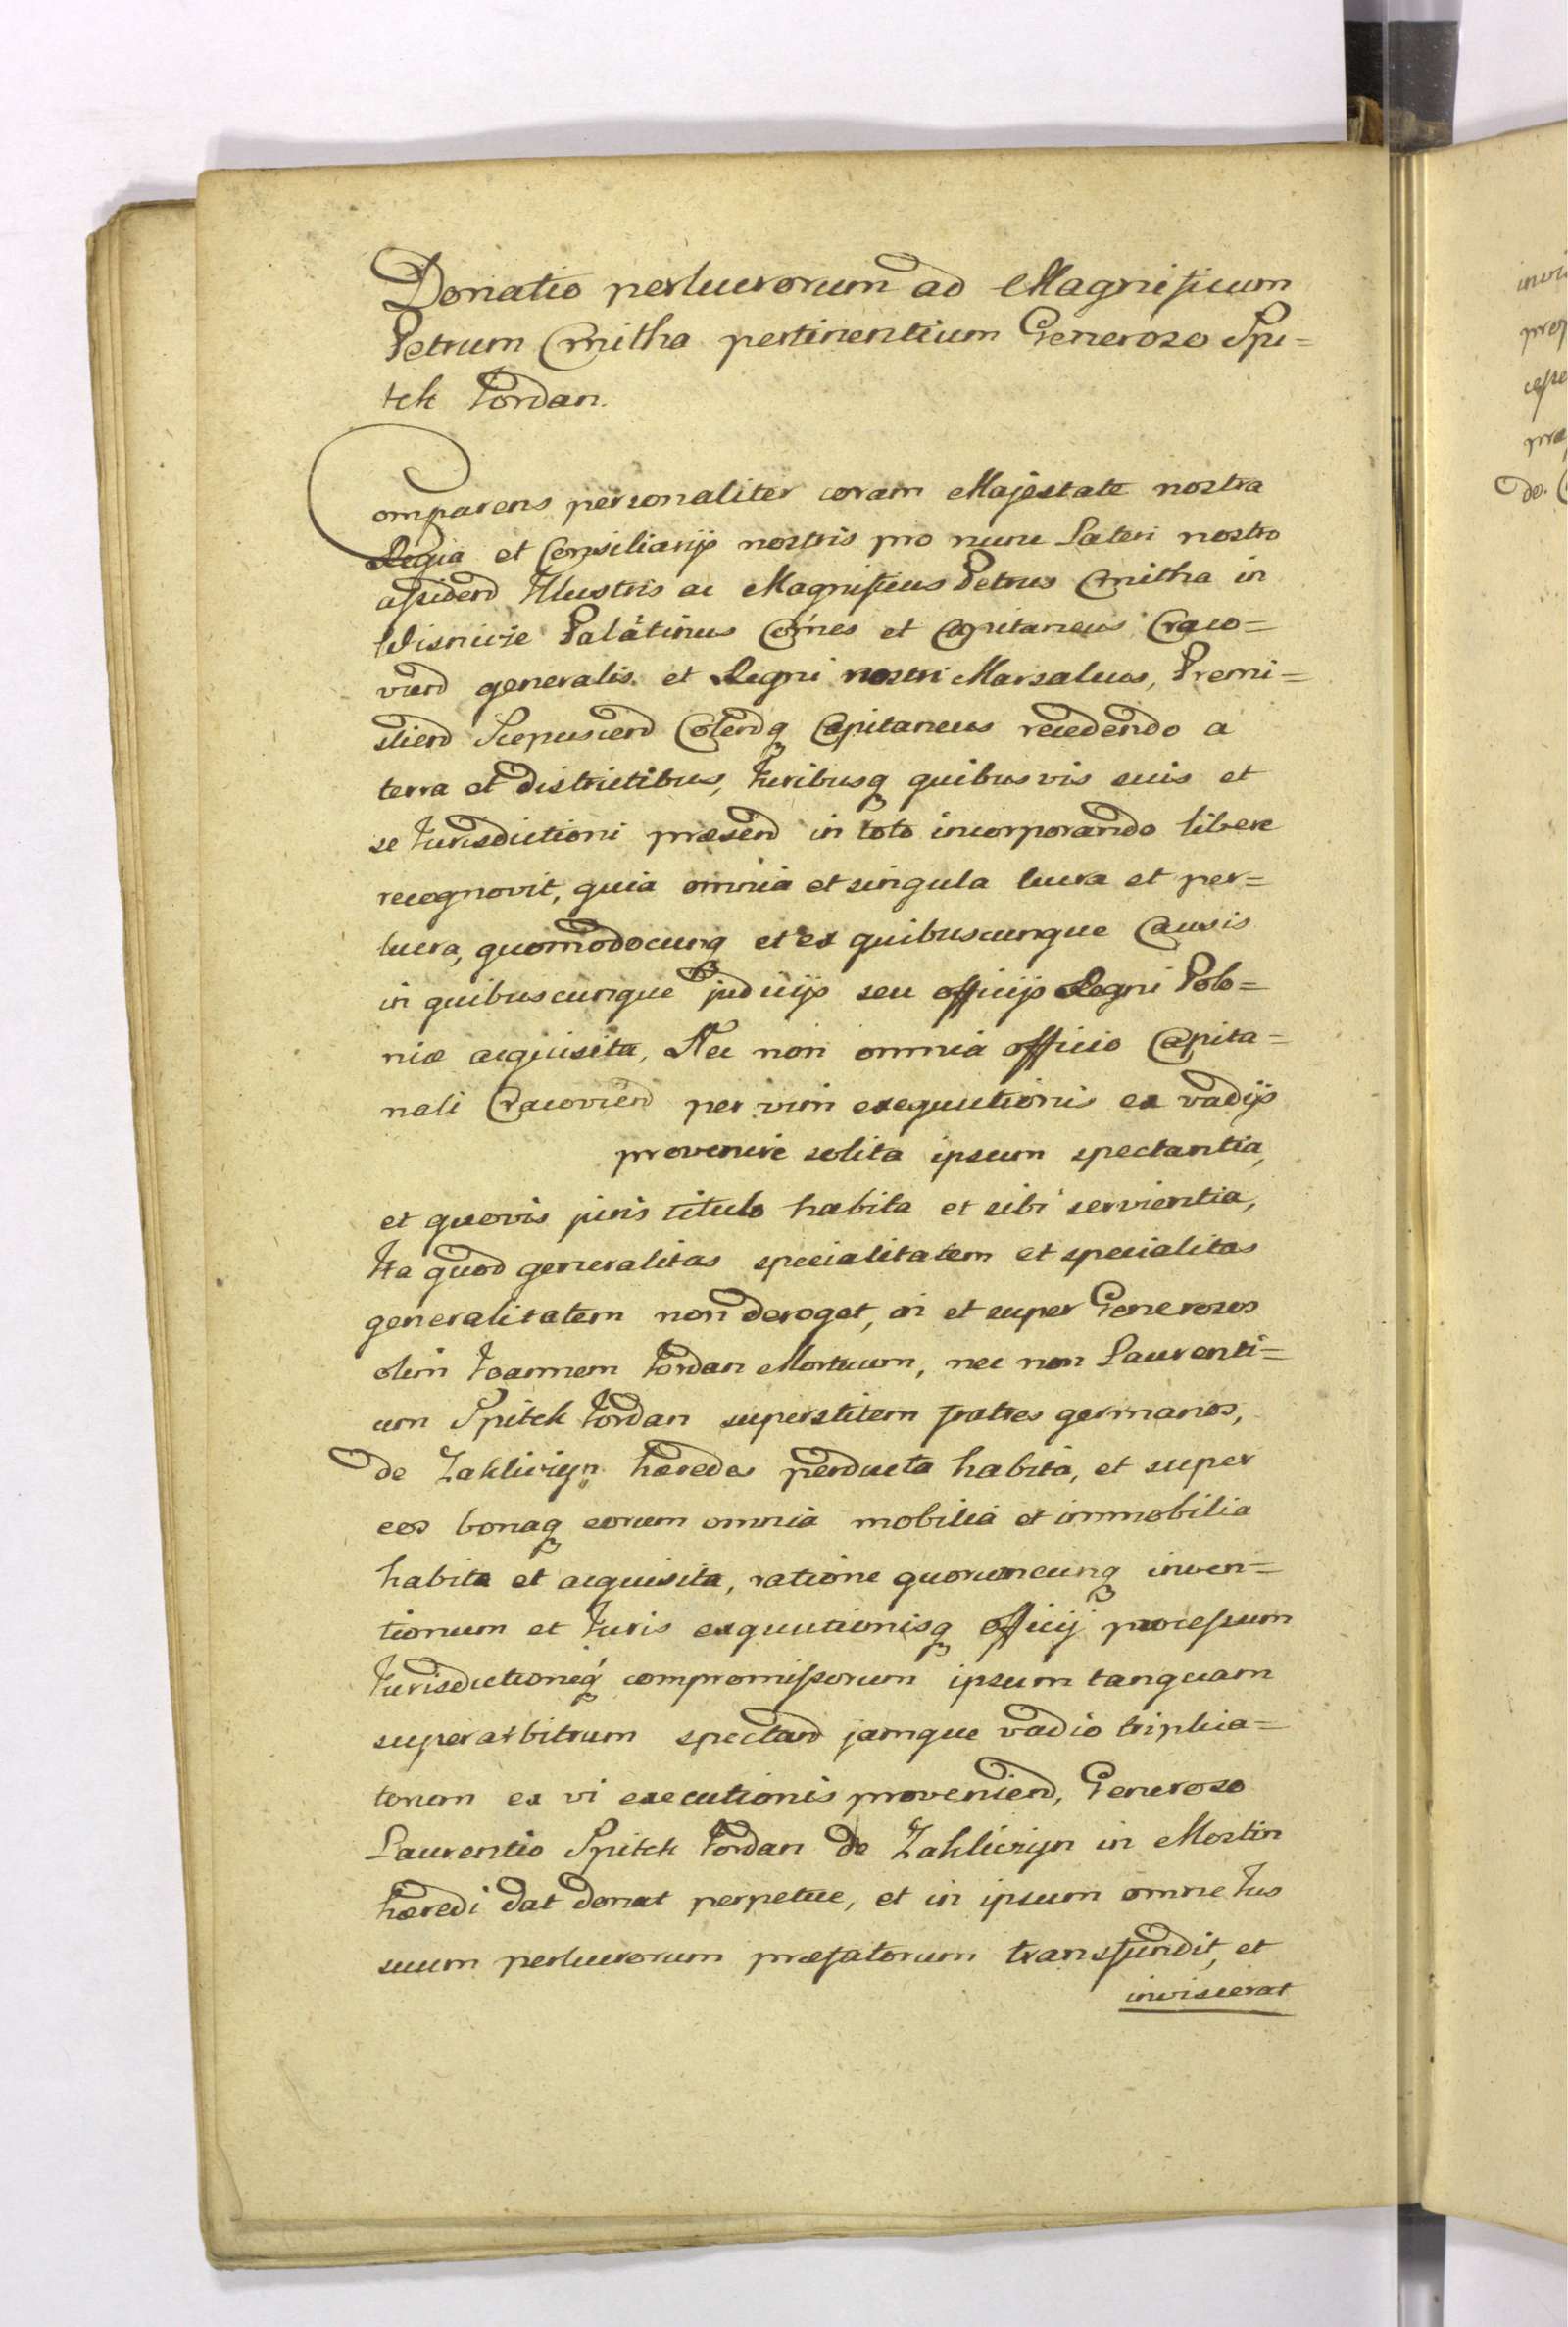 Donatio perlucrorum ad Magnificum
Petrum Cmitha pertinentium Generoso Spi=
tek Jordan.
Comparens personaliter coram Majestate nostra
Regia et Consiliarijs nostris pro nunc Lateri nostro
assidend Illustris ac Magnificus Petrus Cmitha in
Wisnicze Palatinus Comes et Capitaneus Craco=
viend generalis et Regni nostri Marsalcus, Premi=
sliend Scepusiend Colendq Capitaneus recedendo a
terra et districtibus, Juribusq quibusvis suis et
se Jurisdictioni præsend in toto incorporando libere
recognovit, quia omnia et singula lucra et per=
lucra, quomodocunq et ex quibuscunque Causis
in quibuscunque judicijs seu officijs Regni Polo=
niæ acquisita, Nec non omnia officio Capita=
nali Cracoviend per vim exequutionis ex vadijs
provenire solita ipsum spectantia,
et quovis juris titulo habita et sibi servientia,
Ita quod generalitas specialitatem et specialitas
generalitatem non deroget, in et super Generosos
olim Joannem Jordan Mortuum, nec non Laurenti=
um Spitek Jordan superstitem fratres germanos,
de Zakliczyn hæredes perducta habita, et super
eos bonaq eorum omnia mobilia et immobilia
habita et acquisita, ratione quorumcunq inven=
tionum et Juris exquutionisq officij processum
Jurisdictioneq compromissorum ipsum tanquam
superarbitrum spectand jamque vadio triplica=
tonem ex vi executionis proveniend, Generoso
Laurentio Spitek Jordan de Zakliczyn in Mostin
hæredi dat donat perpetue, et in ipsum omne Jus
suum perlucrorum præfatorum transfundit, et
inviscerat